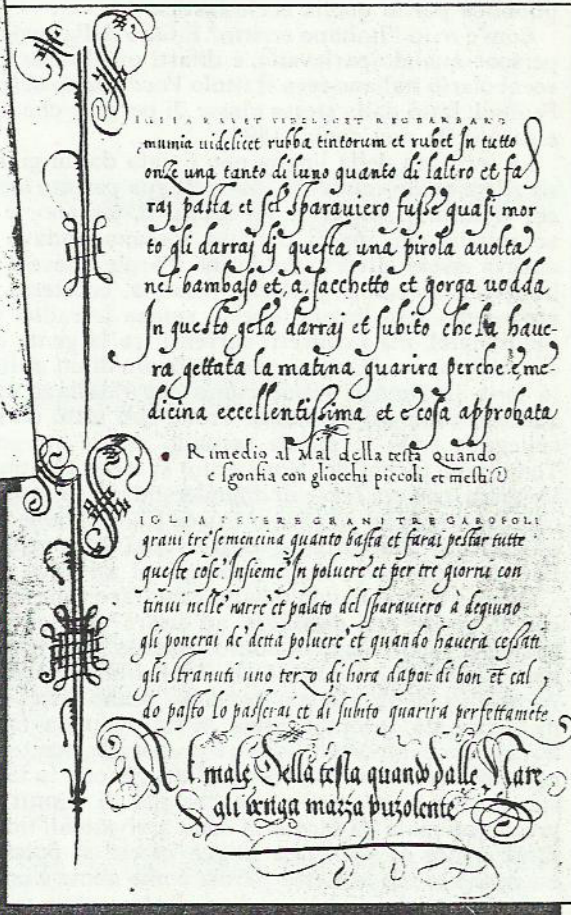 IGLIA RIVET VIDELICET REUBARBARO
mumia uidelicet rubba tintorum et rubet In tutto
onze una tanto di luno quanto di laltro et fa
rai pasta et sel Sparauiero fusse quasi mor
to gli darrai di questa una pirola auolta
nel bambaso et, a, sacchetto et gorga uodda
In questo gela darrai et subito che la haue-
ra gettata la matina guarira perche, e, me-
dicina eccellentissima et e cosa approbata
Rimedio al Mal della testa quando
e sgonfia con gliocchi piccoli et mesti
IGLIA PEVERE GRANI TRE GAROFOLI
grani tre semencina quanto basta et farai pestar tutte
queste cose Insieme In poluere et per tre giorni con
tinui nelle narre et palato del sparauiero à degiuno
gli ponerai de detta poluere et quando hauera cessati
gli stranuti uno terzo di hora dapoi di bon et cal
do pasto lo passerai et di subito guarira perfettamẽte
Al male Della testa quando dalle Nare
gli venga mazza puzolente